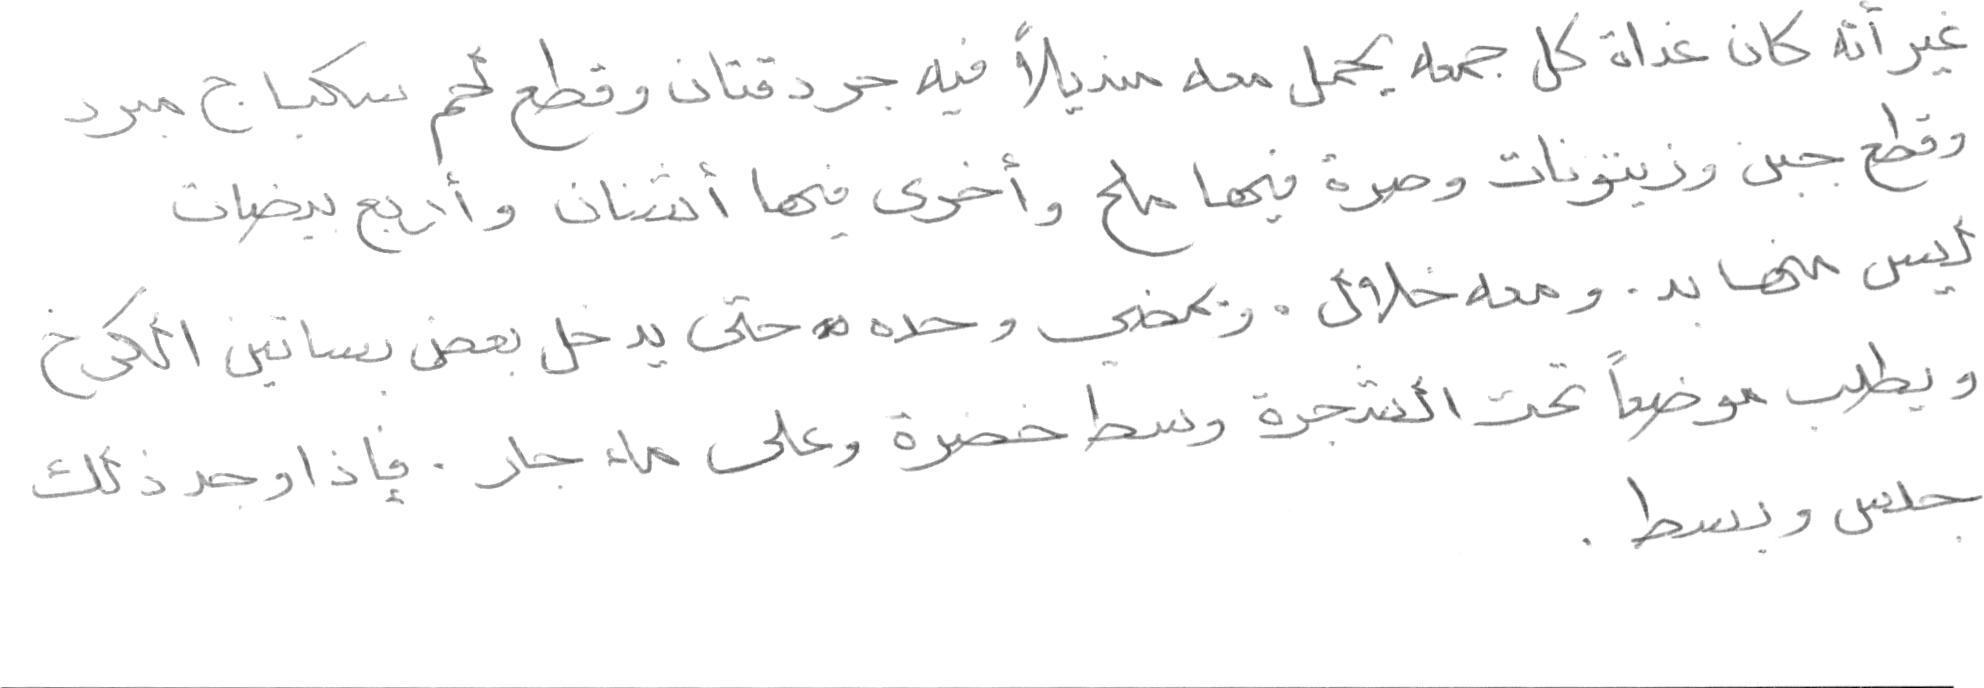 غير أنه كان غداة كل جمعه يحمل معه منديلاً فيه جردقتان وقطع لحم سكباج مبرد
وقطع جبن وزيتونات وصرة فيها ملح وأخرى فيها أشنان وأربع بيضات
ليس منها بد . ومعه خلال . ويمضي وحده حتى يدخل بعض بساتين الكرخ
ويطلب موضعاً تحت الشجرة وسط خضرة وعلى ماء جار . فإذا وجد ذلك
جلس وبسط .